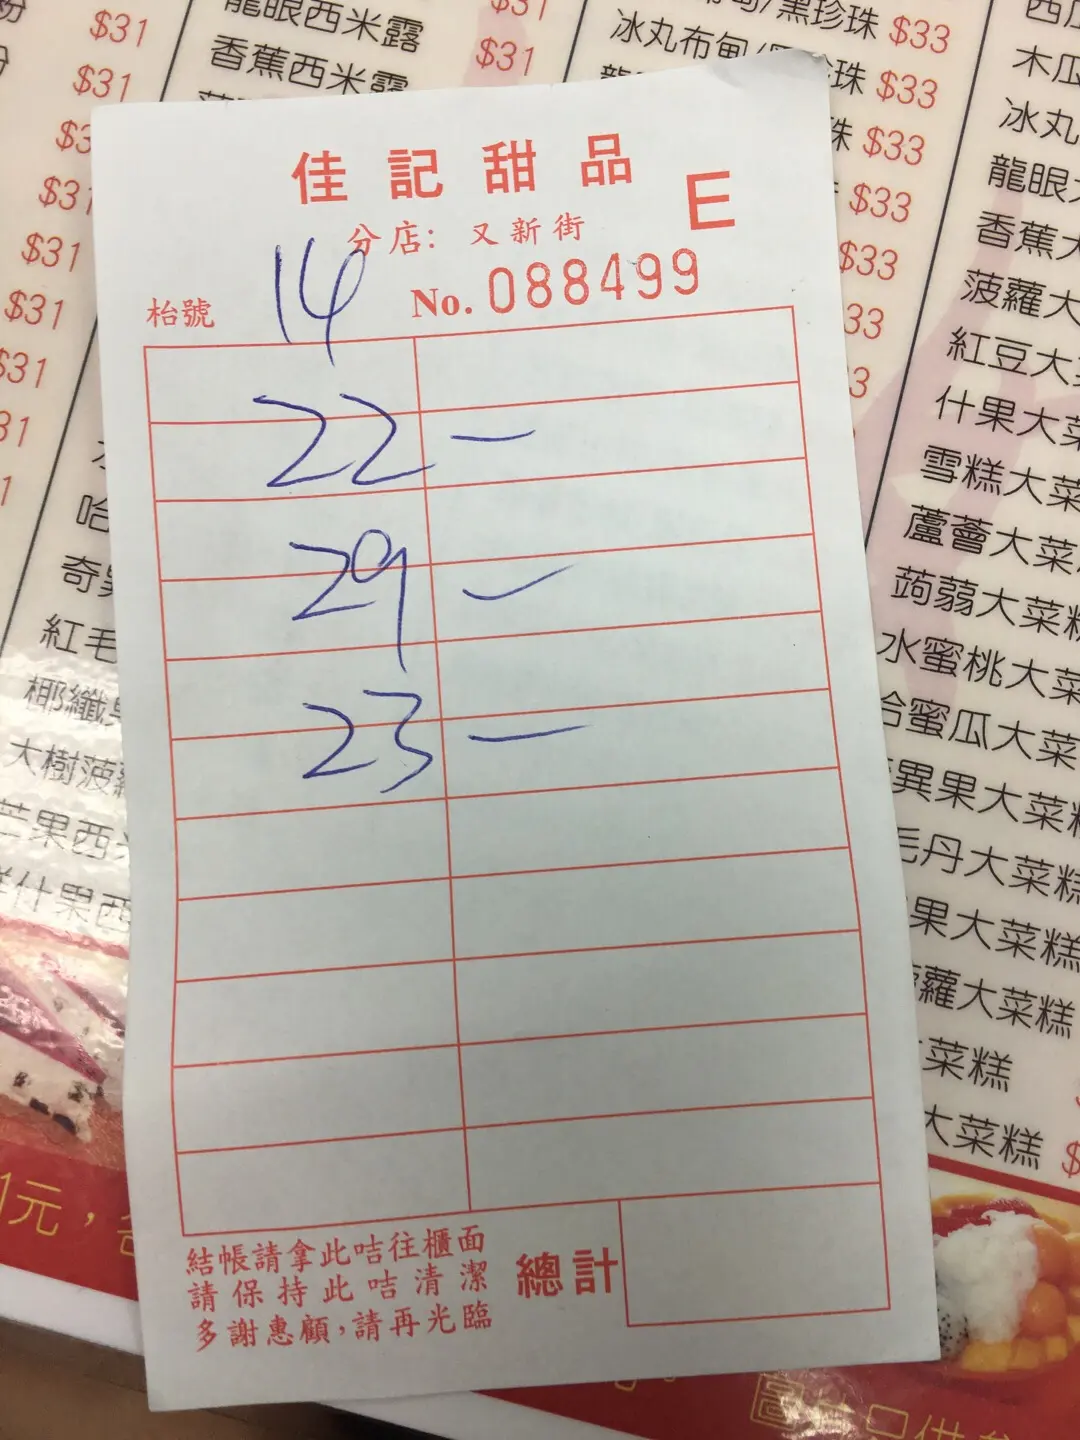 佳記甜品
E
分店: 又新街
枱號 14 No. 088499
22 —
29 —
23 —
結帳請拿此咭往櫃面
請保持此咭清潔
多謝惠顧,請再光臨
總計
$31
$31
$31
$31
$31
龍眼西米露 $31
香蕉西米露 $31
紅毛
大樹菠
芒果西
什果西
黑珍珠 $33
冰丸布甸/ 珍珠 $33
珠 $33
$33
$33
木瓜
冰丸
龍眼
香蕉大
菠蘿大
紅豆大
什果大菜
雪糕大菜
蘆薈大菜
蒟蒻大菜糕
水蜜桃大菜
哈蜜瓜大菜
異果大菜
毛丹大菜糕
果大菜糕
蘿大菜糕
菜糕
大菜糕 $
元，